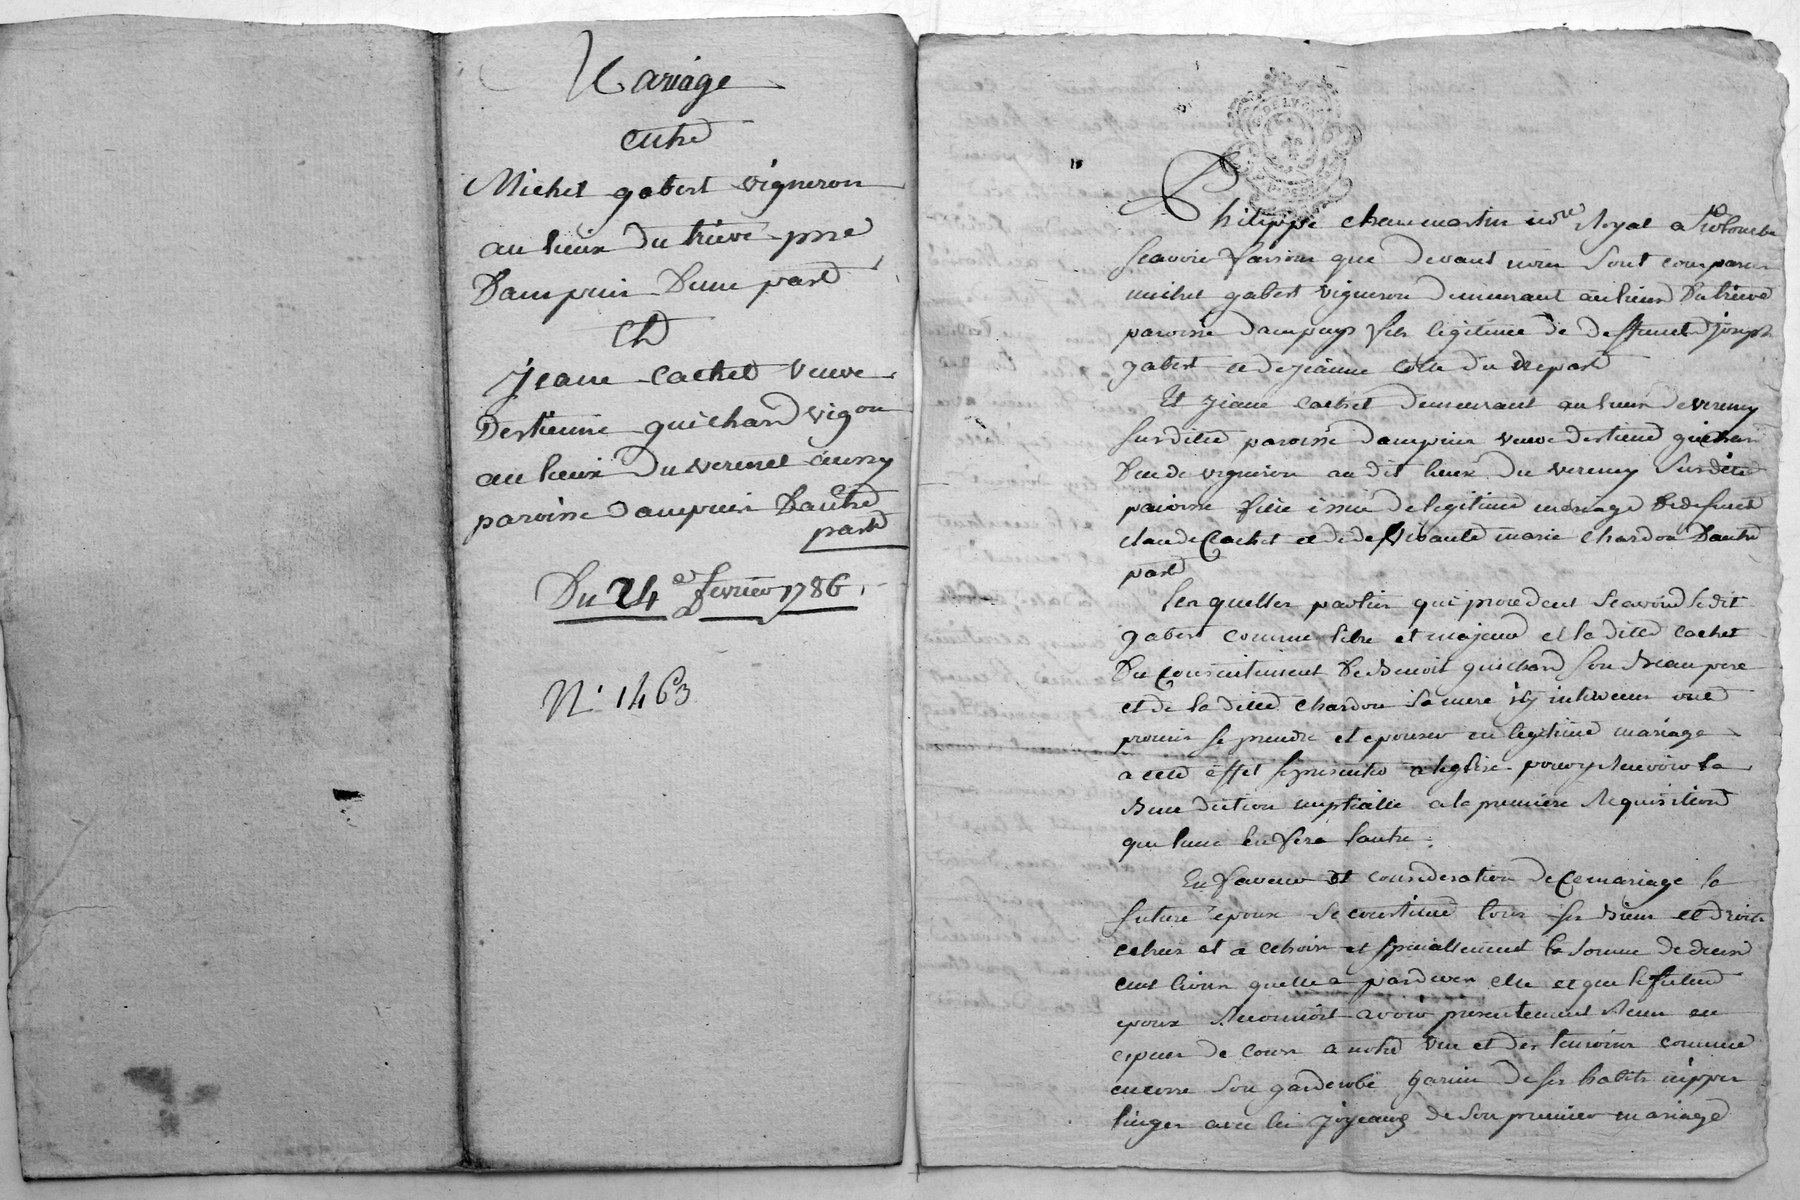 Mariage
entre
Michel gabert vigneron
au lieux du trieve psse
Dampuis Dune part
Et
jeane cachet veuve
Destienne guichard vigon
au lieux du verenet aussy
paroisse dampuis Dautre
part
Du 24e fevrier 1786
N. 1463
Philippe chanmartin nore Royal a Ste Colombe
scavoir faisons que devant nous sont comparus
michel gabert vigneron demeurant au lieux Du trieve
paroisse dampuys fils legitime de deffunct joseph
gabert et de jeanne dune part
Et jeane cachet demeurant au lieux de vereney
susditte paroisse dampuis veuve destiene guichard
vigneron au dit lieux du vereney susditte
paroisse fille issue de legitime mariage de defunct
claude Cachet et de vivante marie chardon Dautre
part
les quelles parties qui procedent scavoir ledit
gabert comme libre et majeur et la ditte cachet
Du consentement De Benoit guichard son Beaupere
et de la ditte chardon sa mere icy intervenus ont
promis se prendre et epouser en legitime mariage
a cette effet se presenter a leglise pour y Recevoir la
Benediction nuptialle a la premiere Requisition
que lune en fera lautre.
En faveur et consideration de Ce mariage la
future epouse se constitue tous ses Biens et droits
echus et a echoir et speciallement la somme de deux
cent livres quelle a pardevers elle et que le futur
epoux Reconnoit avoir presentement Recue en
especes de cours a notre vue et des temoins comme
encorre son garderobe garnie de ses habits nippes
linges avec les joyeaux de son premier mariage